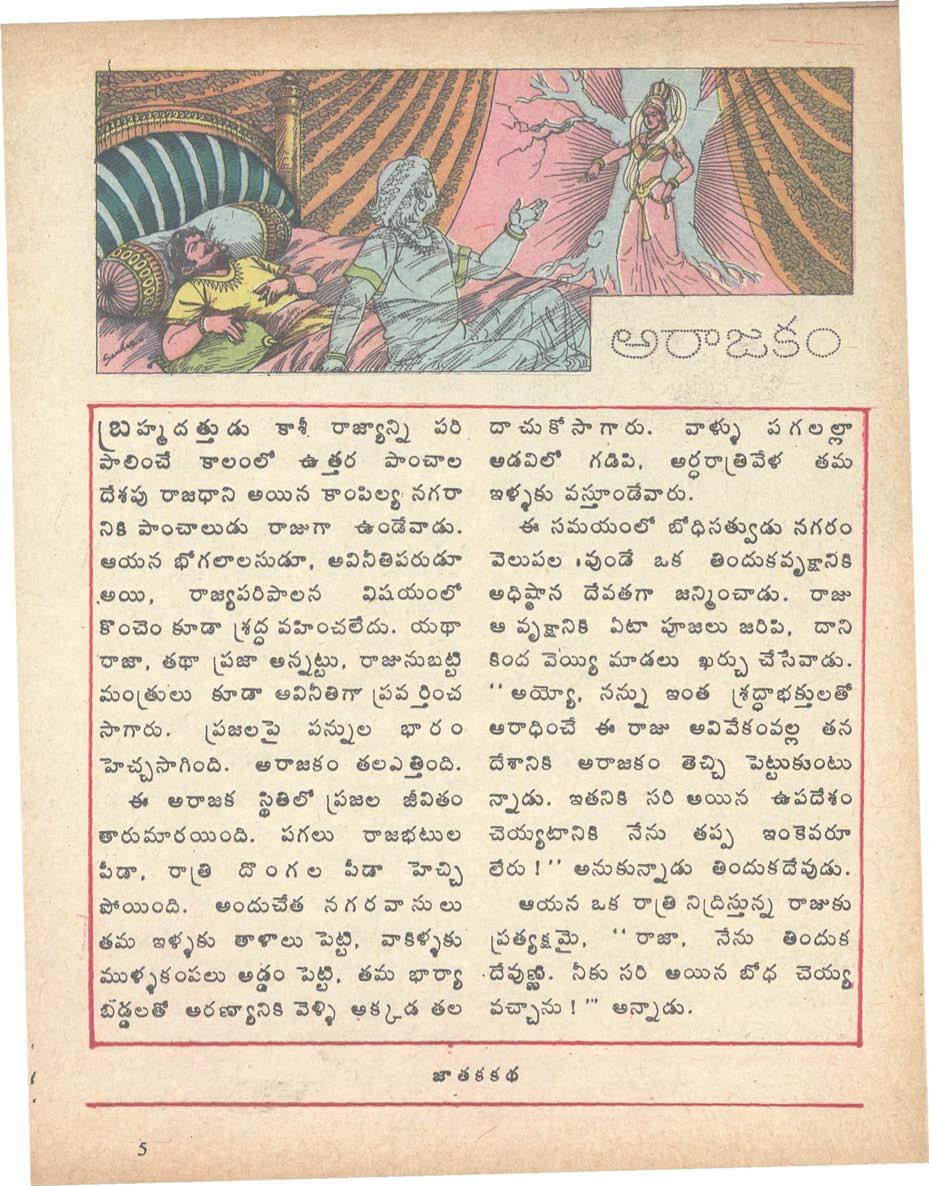 అరాజకం
బ్రహ్మదత్తుడు కాశీ రాజ్యాన్ని పరి
పాలించే కాలంలో ఉత్తర పాంచాల
దేశపు రాజధాని అయిన కాంపిల్య నగరా
నికి పాంచాలుడు రాజుగా ఉండేవాడు.
ఆయన భోగలాలసుడూ, అవినీతిపరుడూ
అయి, రాజ్యపరిపాలన విషయంలో
కొంచెం కూడా శ్రద్ధ వహించలేదు. యథా
రాజా, తథా ప్రజా అన్నట్టు, రాజునుబట్టి
మంత్రులు కూడా అవినీతిగా ప్రవర్తించ
సాగారు. ప్రజలపై పన్నుల భారం
హెచ్చసాగింది. అరాజకం తలఎత్తింది.
ఈ అరాజక స్థితిలో ప్రజల జీవితం
తారుమారయింది. పగలు రాజభటుల
పీడా, రాత్రి దొంగల పీడా హెచ్చి
పోయింది. అందుచేత నగరవాసులు
తమ ఇళ్ళకు తాళాలు పెట్టి, వాకిళ్ళకు
ముళ్ళకంపలు అడ్డం పెట్టి, తమ భార్యా
బిడ్డలతో అరణ్యానికి వెళ్ళి అక్కడ తల
దాచుకోసాగారు. వాళ్ళు పగలల్లా
అడవిలో గడిపి, అర్ధరాత్రివేళ తమ
ఇళ్ళకు వస్తూండేవారు.
ఈ సమయంలో బోధిసత్వుడు నగరం
వెలుపల వుండే ఒక తిందుకవృక్షానికి
అధిష్ఠాన దేవతగా జన్మించాడు. రాజు
ఆ వృక్షానికి ఏటా పూజలు జరిపి, దాని
కింద వెయ్యి మాడలు ఖర్చు చేసేవాడు.
“అయ్యో, నన్ను ఇంత శ్రద్ధాభక్తులతో
ఆరాధించే ఈ రాజు అవివేకంవల్ల తన
దేశానికి అరాజకం తెచ్చి పెట్టుకుంటు
న్నాడు. ఇతనికి సరి అయిన ఉపదేశం
చెయ్యటానికి నేను తప్ప ఇంకెవరూ
లేరు!” అనుకున్నాడు తిందుకదేవుడు.
ఆయన ఒక రాత్రి నిద్రిస్తున్న రాజుకు
ప్రత్యక్షమై, “రాజా, నేను తిందుక
దేవుణ్ణి. నీకు సరి అయిన బోధ చెయ్య
వచ్చాను!” అన్నాడు.
జాతకకథ
5